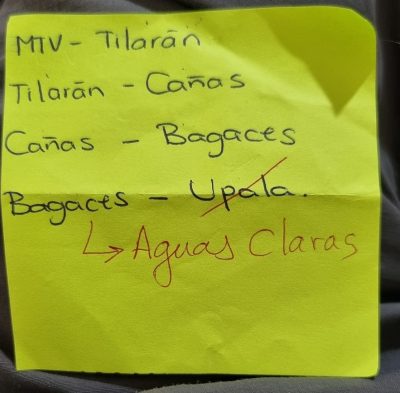 MTV - Tilarān
Tilarān - Cañas
Cañas - Bagaces
Bagaces - Upala.
↳ Aguas Claras